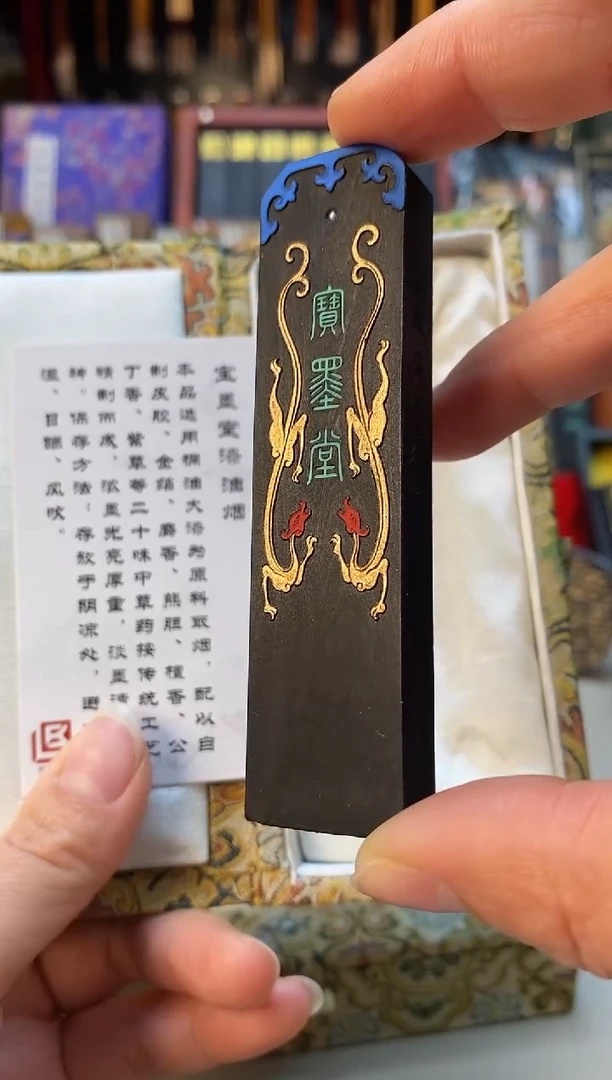 寶墨堂
宝墨堂漆油烟
本品选用桐油大漆为原料取烟，配以自
制皮胶、金箔、麝香、熊胆、檀香、公
丁香、紫草等二十味中草药按传统工艺
精制而成。浓墨光亮厚重，淡墨清
神。保存方法：存放于阴凉处，避
湿、日晒、风吹。